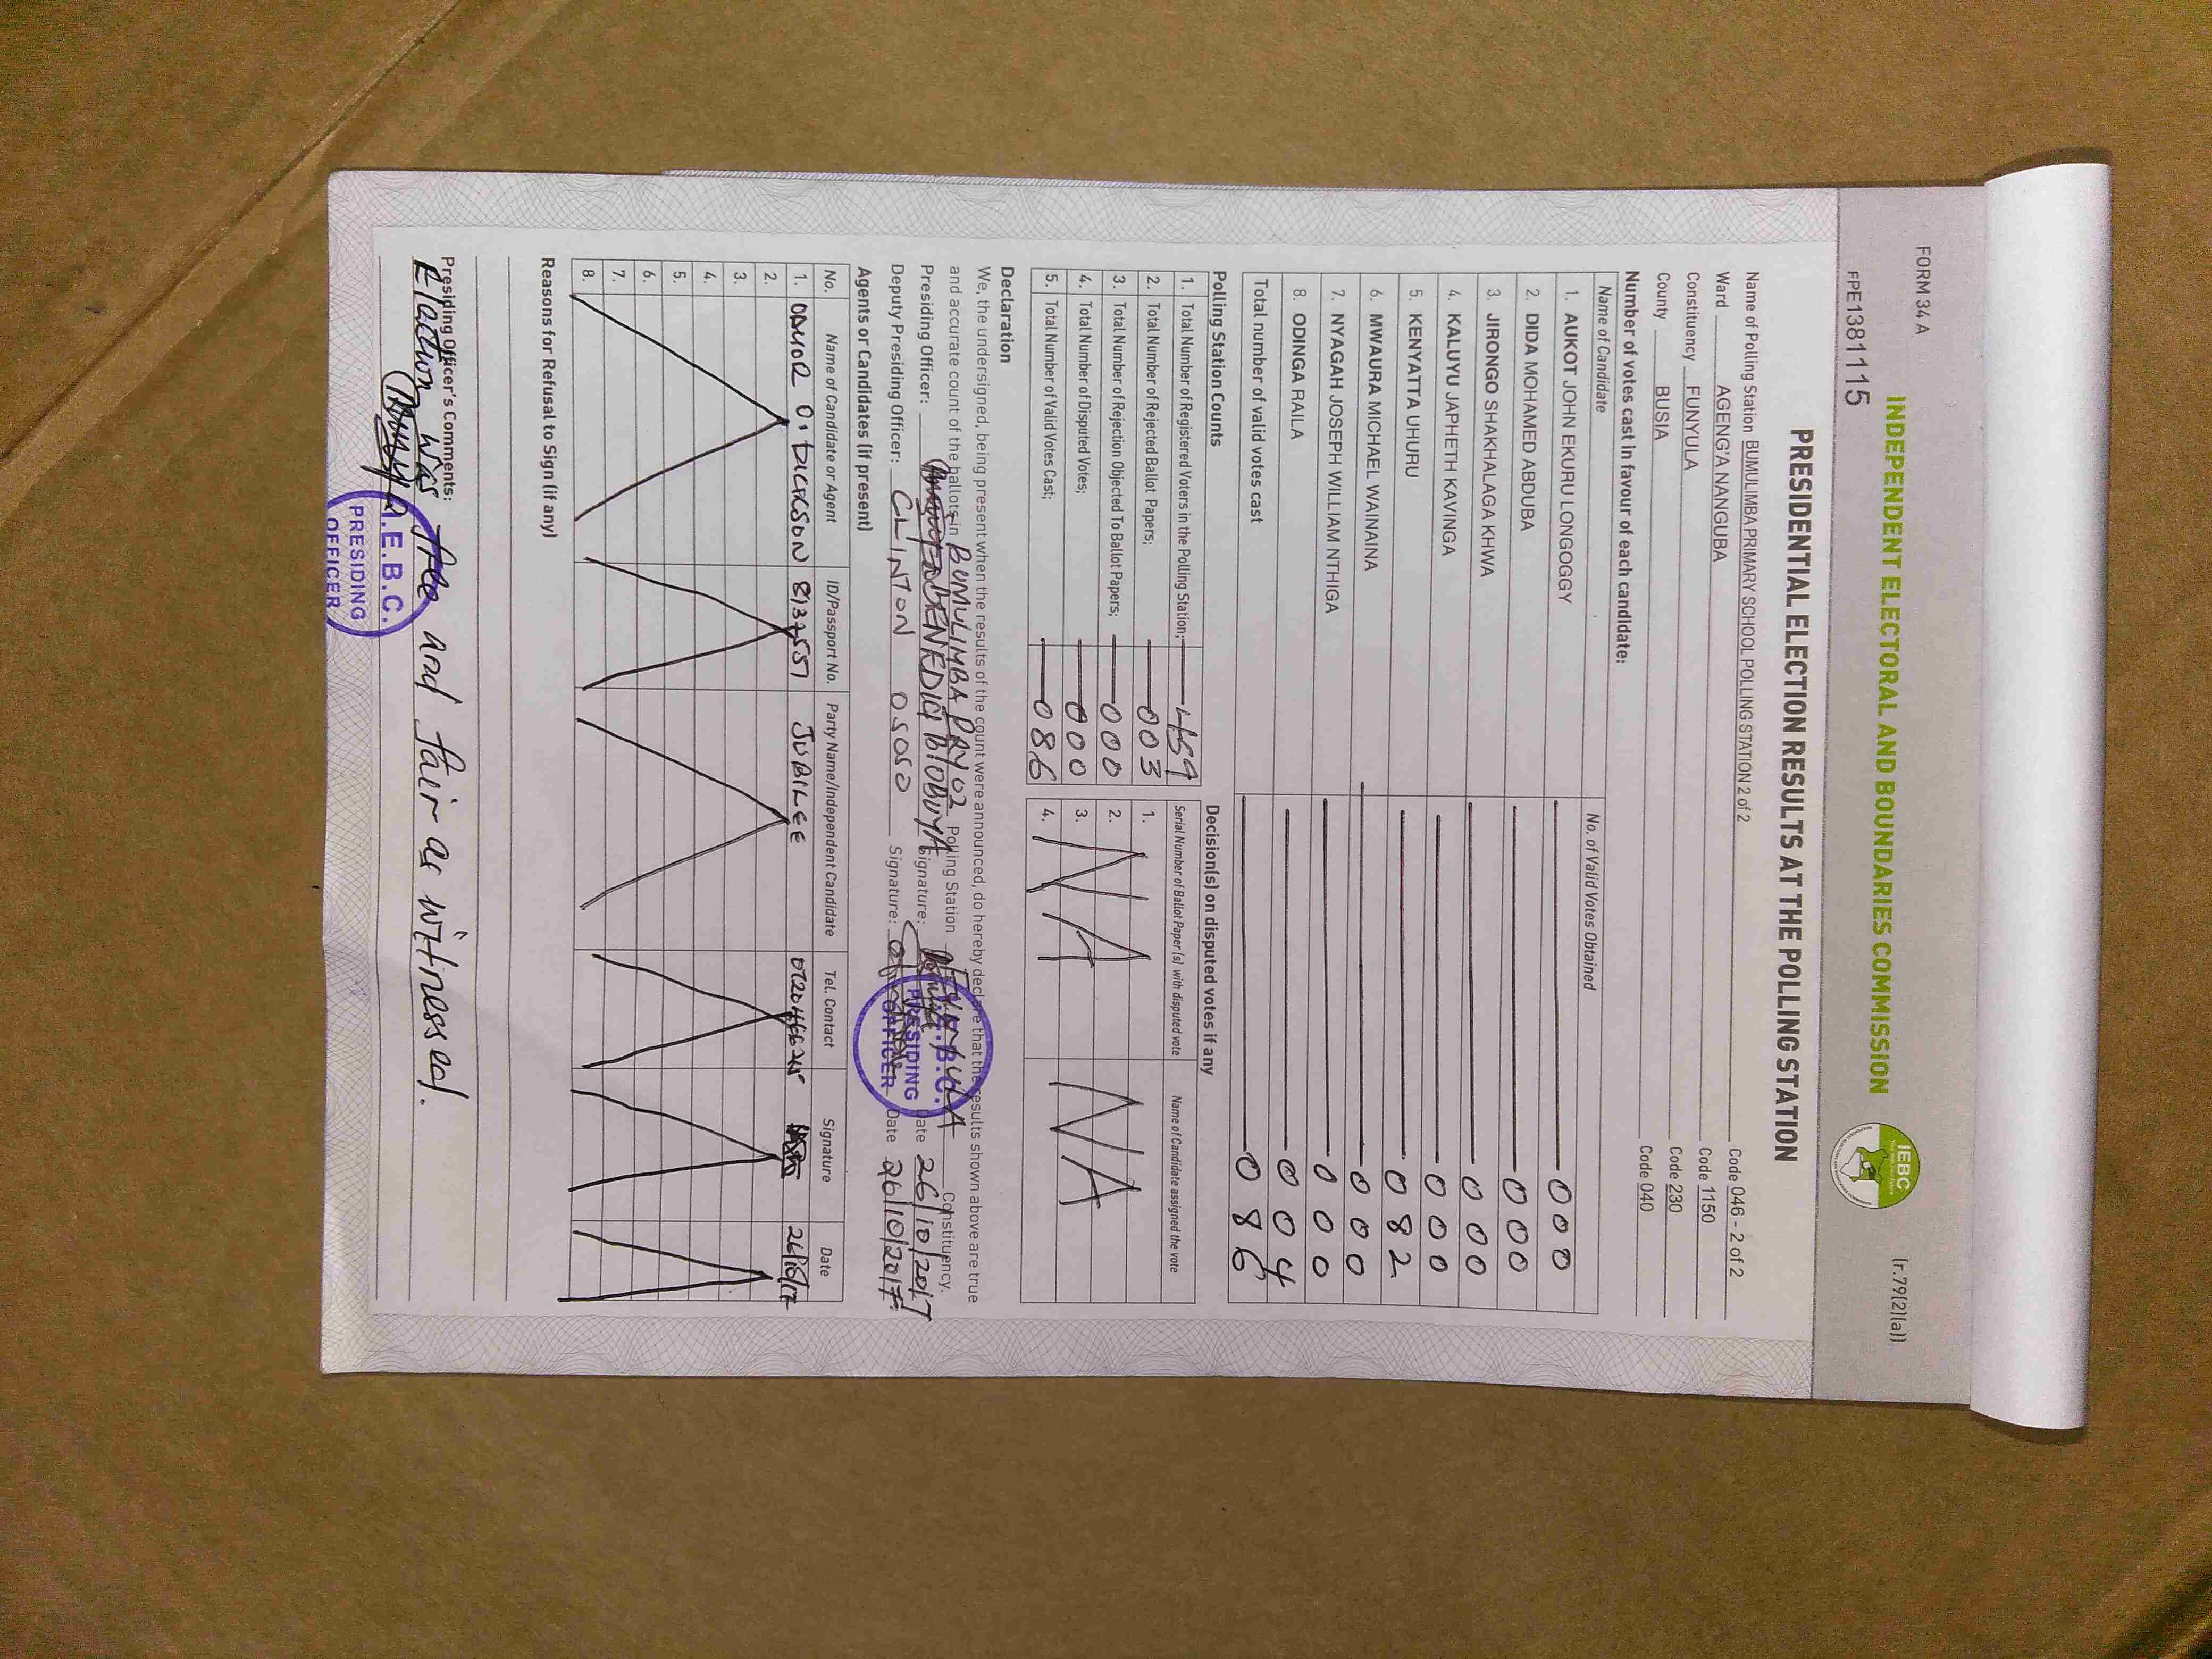 FORM 34 A
(r.79(2)(a))
INDEPENDENT ELECTORAL AND BOUNDARIES COMMISSION
IEBC
FPE1381115
PRESIDENTIAL ELECTION RESULTS AT THE POLLING STATION
Name of Polling Station BUMULIMBA PRIMARY SCHOOL POLLING STATION 2 of 2 Code 046 - 2 of 2
Ward AGENG'A NANGUBA Code 1150
Constituency FUNYULA Code 230
County BUSIA Code 040
Number of votes cast in favour of each candidate:
Name of Candidate No. of Valid Votes Obtained
1. AUKOT JOHN EKURU LONGOGGY 000
2. DIDA MOHAMED ABDUBA 000
3. JIRONGO SHAKHALAGA KHWA 000
4. KALUYU JAPHETH KAVINGA 000
5. KENYATTA UHURU 082
6. MWAURA MICHAEL WAINAINA 000
7. NYAGAH JOSEPH WILLIAM NTHIGA 000
8. ODINGA RAILA 004
Total number of valid votes cast 086
Polling Station Counts
1. Total Number of Registered Voters in the Polling Station; 459
2. Total Number of Rejected Ballot Papers; 003
3. Total Number of Rejection Objected To Ballot Papers; 000
4. Total Number of Disputed Votes; 000
5. Total Number of Valid Votes Cast; 086
Decision(s) on disputed votes if any
Serial Number of Ballot Paper(s) with disputed vote Name of Candidate assigned the vote
1.
2.
3.
4.
N/A N/A
Declaration
We, the undersigned, being present when the results of the count were announced, do hereby declare that the results shown above are true
and accurate count of the ballots in BUMULIMBA PRY 02 Polling Station FUNYULA Constituency.
Presiding Officer: BENEDICT B. OBUYA Signature: Date 26/10/2017
Deputy Presiding Officer: CLINTON OSODO Signature: Date 26/10/2017
I.E.B.C. PRESIDING OFFICER
Agents or Candidates (if present)
No. Name of Candidate or Agent ID/Passport No. Party Name/Independent Candidate Tel. Contact Signature Date
1. ODUOR O. DICKSON JUBILEE 26/10/17
2.
3.
4.
5.
6.
7.
8.
Reasons for Refusal to Sign (if any)
Presiding Officer's Comments:
Election was free and fair as witnessed.
I.E.B.C. PRESIDING OFFICER